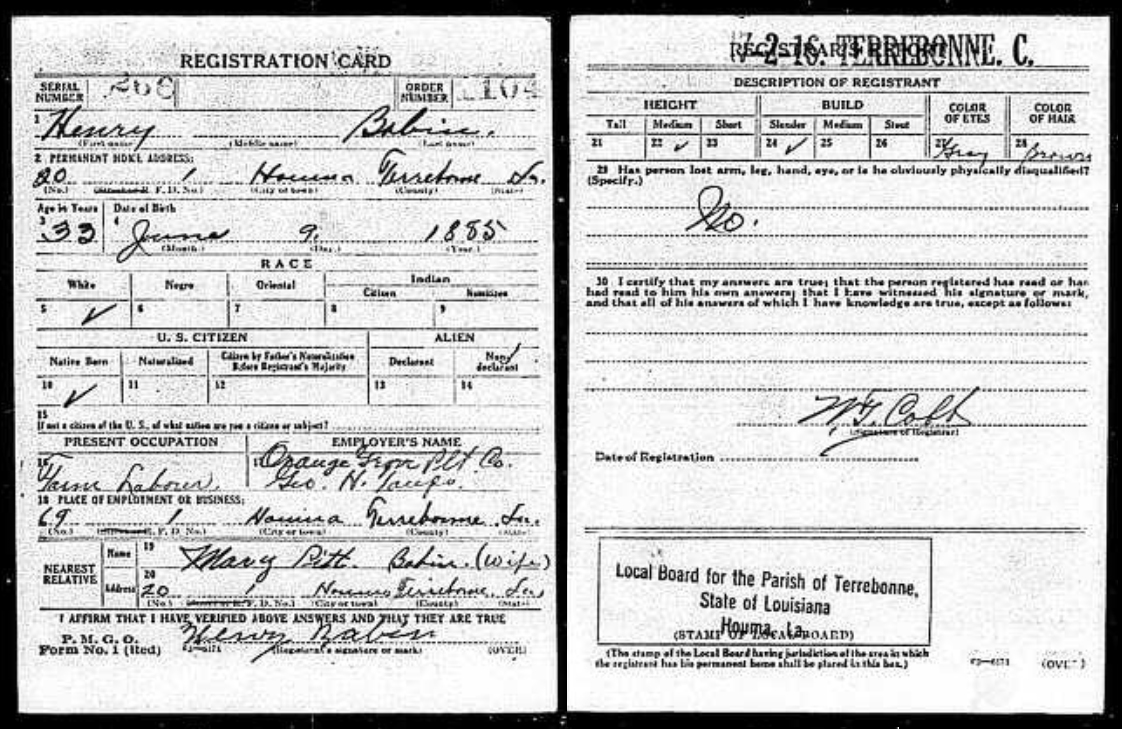 REGISTRATION CARD
SERIAL NUMBER 266 ORDER NUMBER
1 Henry Babin.
(First name) (Middle name) (Last name)
2 PERMANENT HOME ADDRESS:
20 1 Houma Terrebonne La.
(No.) (Street or R. F. D. No.) (City or town) (County) (State)
Age in Years Date of Birth
3 33 4 June 9. 1885
(Month.) (Day.) (Year.)
RACE
White Negro Oriental Indian
Citizen Noncitizen
5 ✓ 6 7 8 9
U. S. CITIZEN ALIEN
Native Born Naturalized Citizen by Father's Naturalization Before Registrant's Majority Declarant Non-declarant
10 ✓ 11 12 13 14
15
If not a citizen of the U. S., of what nation are you a citizen or subject?
PRESENT OCCUPATION EMPLOYER'S NAME
16 Farm Laborer. Orange Grove Plt Co.
Geo. H.
18 PLACE OF EMPLOYMENT OR BUSINESS:
69 1 Houma Terrebonne La.
(No.) (Street or R. F. D. No.) (City or town) (County) (State)
NEAREST RELATIVE
Name 19 Mary Babin. (wife)
Address 20 20 1 Houma Terrebonne, La.
(No.) (Street or R. F. D. No.) (City or town) (County) (State)
I AFFIRM THAT I HAVE VERIFIED ABOVE ANSWERS AND THAT THEY ARE TRUE
P. M. G. O.
Form No. 1 (Red) Henry Babin
(Registrant's signature or mark) (OVER)
REGISTRAR'S REPORT
17-2-16. TERREBONNE. C.
DESCRIPTION OF REGISTRANT
HEIGHT BUILD COLOR OF EYES COLOR OF HAIR
Tall Medium Short Slender Medium Stout
21 22 ✓ 23 24 ✓ 25 26 27 Gray 28 Brown
29 Has person lost arm, leg, hand, eye, or is he obviously physically disqualified?
(Specify.)
No.
30 I certify that my answers are true; that the person registered has read or has
had read to him his own answers; that I have witnessed his signature or mark,
and that all of his answers of which I have knowledge are true, except as follows:
W. G. Cobb
(Signature of Registrar)
Date of Registration
Local Board for the Parish of Terrebonne,
State of Louisiana
Houma, La.
(STAMP OF LOCAL BOARD)
(The stamp of the Local Board having jurisdiction of the area in which
the registrant has his permanent home shall be placed in this box.)
(OVER)